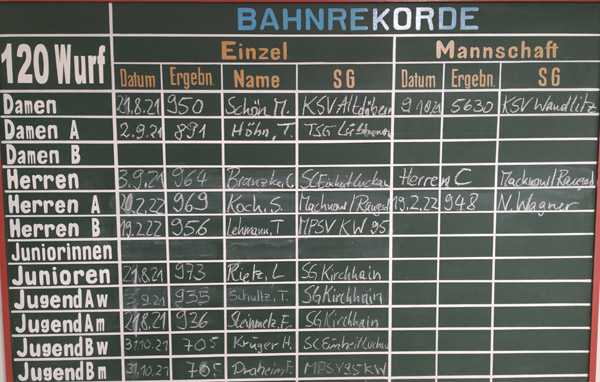 BAHNREKORDE
120 Wurf Einzel Mannschaft
Datum Ergebn. Name SG Datum Ergebn. SG
Damen 21.8.21 950 Schön, M. KSV Altdöbern 9.10.21 5630 KSV Wandlitz
Damen A 2.9.21 891 Höhn, T. TSG
Damen B
Herren 3.9.21 964 Branzka, C. SC Einheit Luckau Herren C Machnow/
Herren A 969 Koch, S. Machnow/ 19.2.22 948 N. Wagner
Herren B 19.2.22 956 Lehmann, T MPSV KW 95
Juniorinnen
Junioren 21.8.21 973 Rietz, L SG Kirchhain
Jugend Aw 3.9.21 935 Schultz, T. SG Kirchhain
Jugend Am 21.8.21 936 Steinmetz, E. SG Kirchhain
Jugend Bw 31.10.21 705 Krüger H. SC Einheit Luckau
Jugend Bm 31.10.21 705 Draheim F. MPSV 95 KW